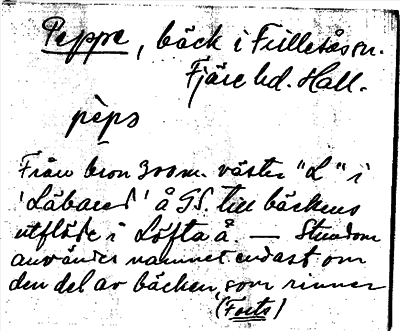 Peppe, bäck i Frillesås sn.
Fjäre hd. Hall.
pèps
Från bron 300 m. väster "L" i
'Läbaced' å GS. till bäckens
utflöde i Löfta å. — Stundom
användes namnet endast om
den del av bäcken, som rinner
(Forts)